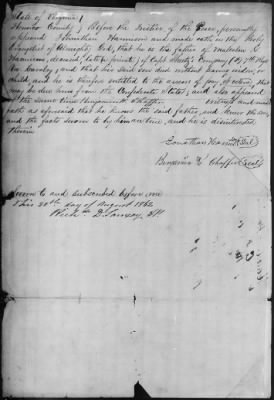 State of Virginia }
County } Before the Justice of the Peace personally
appeared Jonathan Harrison and made oath on the Holy
Evangelist of Almighty God, that he is the father of
Harrison, deceased, late private of Capt Company (D) 7th Reg
Va Cavalry; and that his said son died without having widow, or
child and he is therefore entitled to the arrears of pay, &c, that
may be due from the Confederate States; and also appeared
at the same time Benjamin Chaffin and made
oath as aforesaid that he knows the said father, and knew the son,
and the facts sworn to by him are true, and he is disinterested
therein
Jonathan Harrison (Seal)
Benjamin Chaffin (Seal)
Sworn to and subscribed before me
this 20th day of August 1862